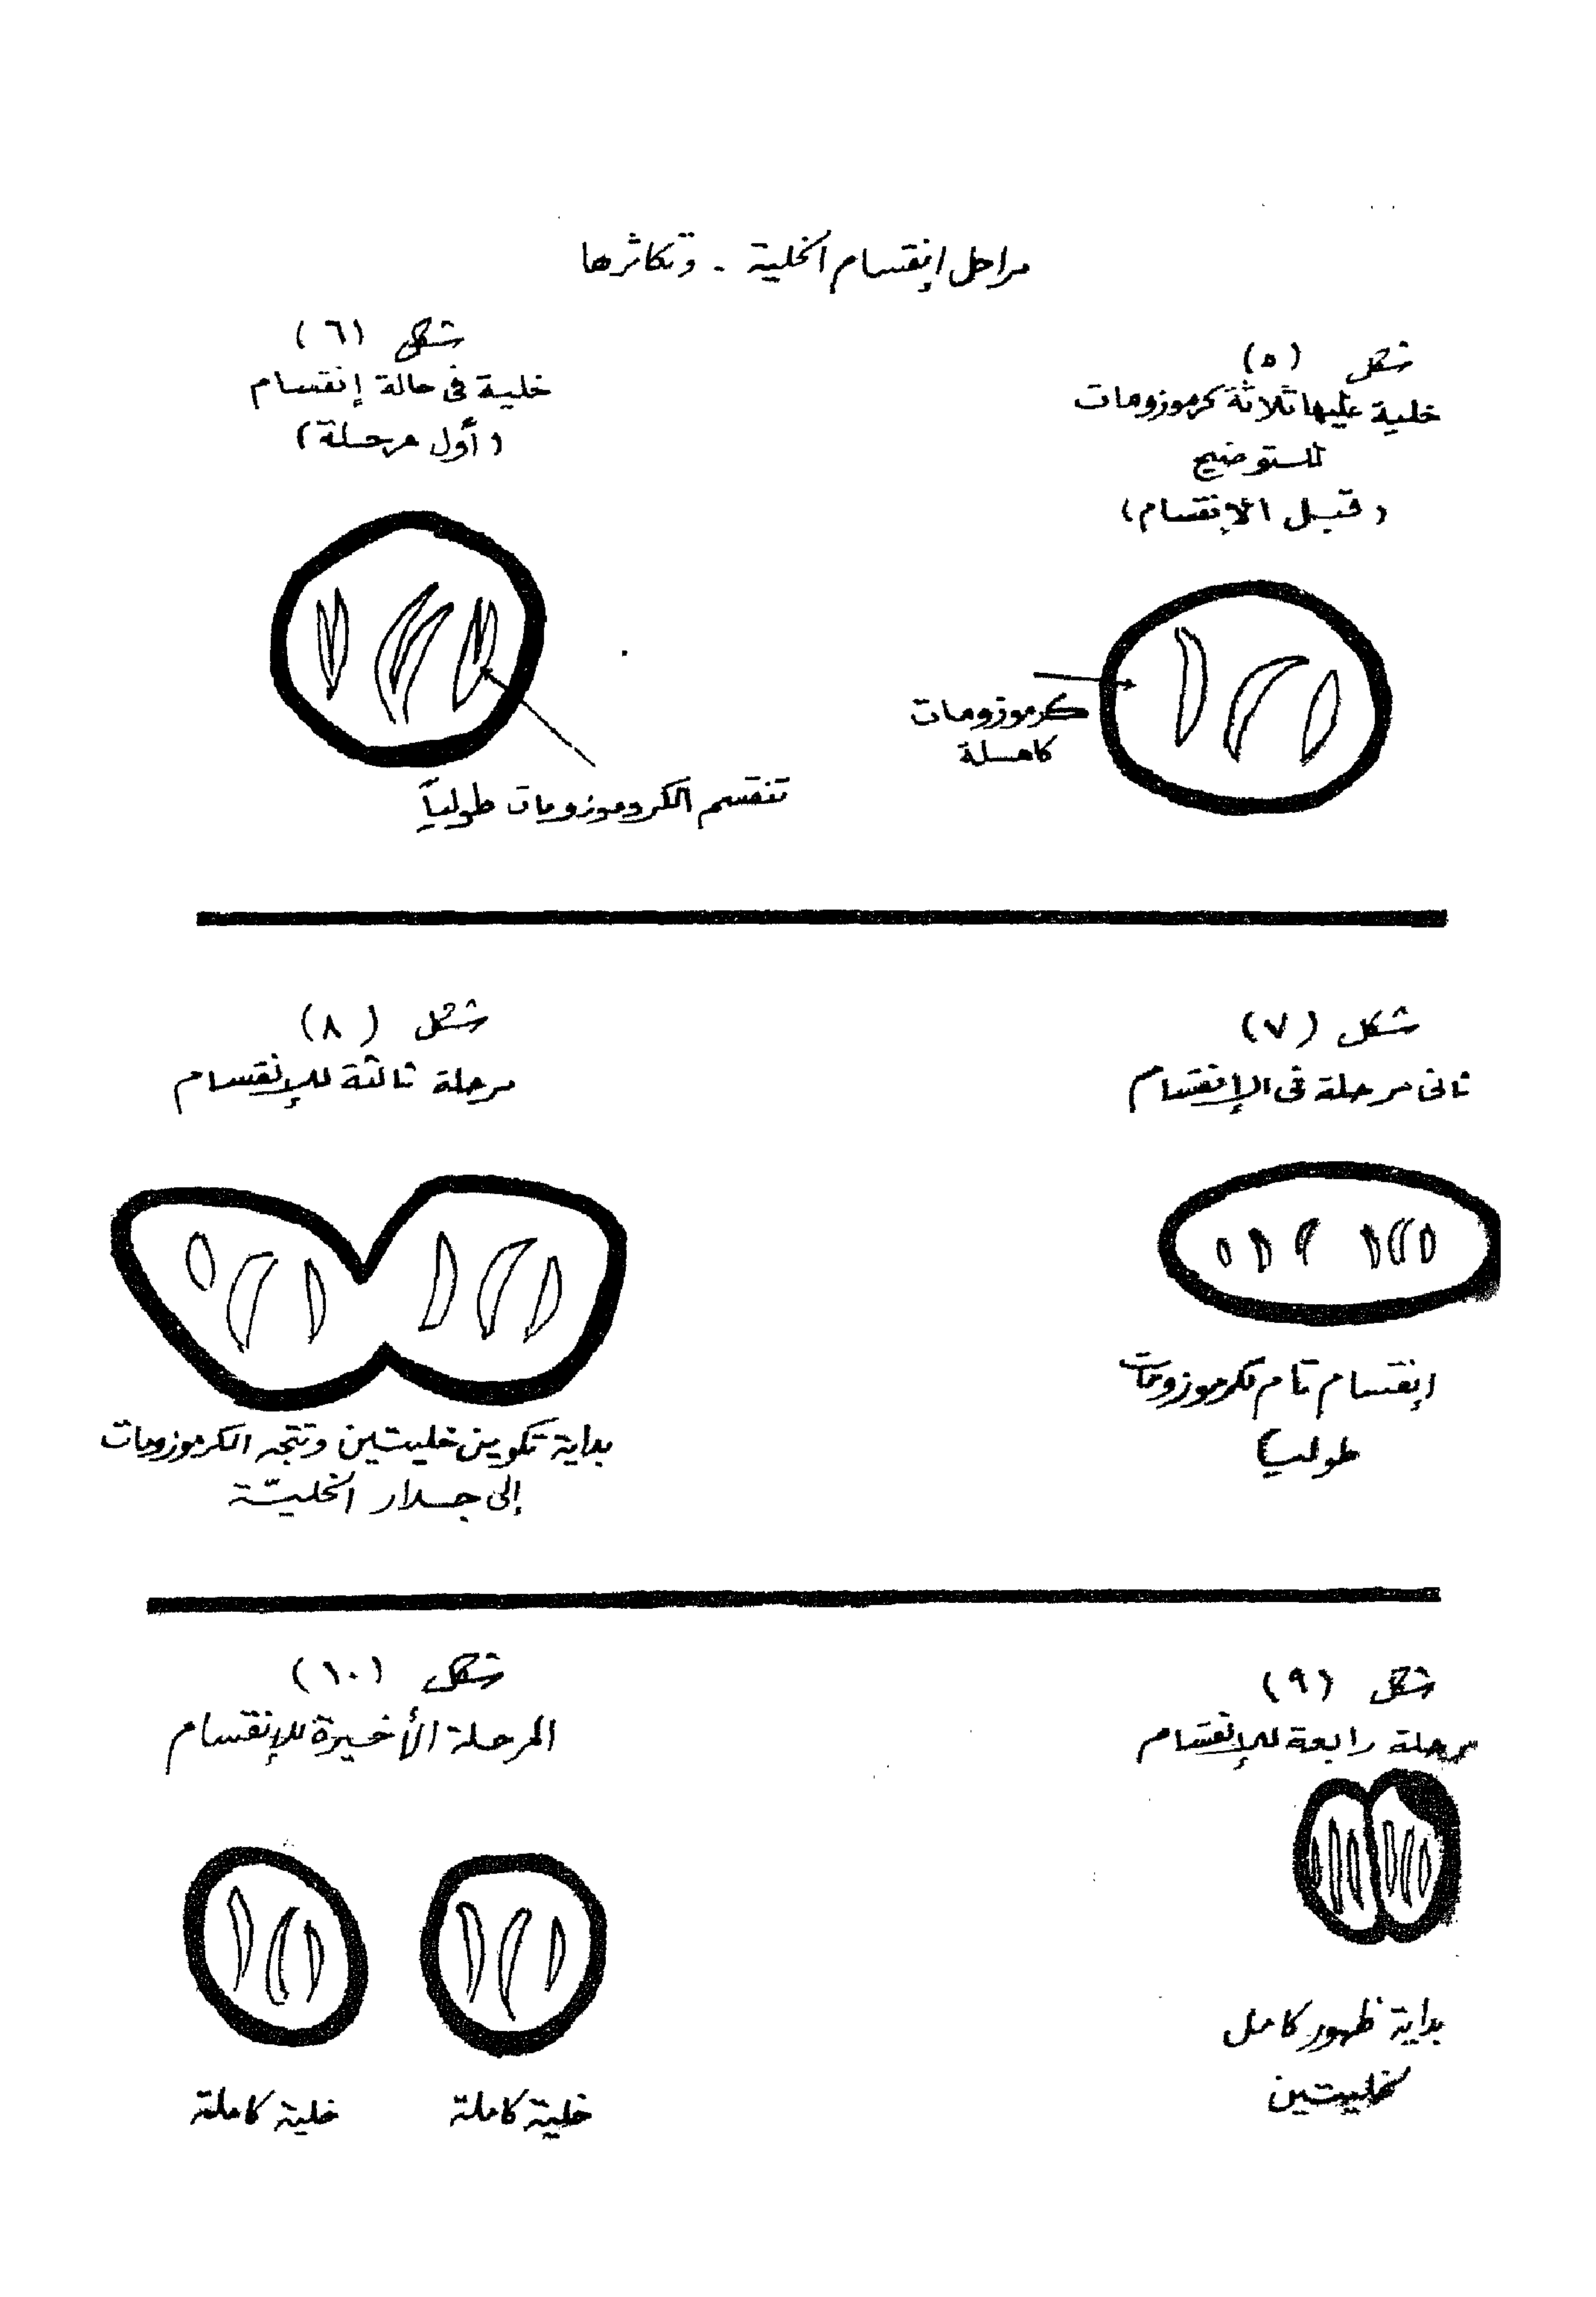 مراحل إنقسام الخلية - وتكاثرها
شكل (٥)
خلية عليها ثلاثة كرموزومات
للتوضيح
(قبل الإنقسام)
كرموزومات
كاملة
شكل (٦)
خلية فى حالة إنقسام
(أول مرحلة)
تنقسم الكروموزومات طولياً
شكل (٧)
ثانى مرحلة فى الإنقسام
إنقسام تام لكرموزومات
طولياً
شكل (٨)
مرحلة ثالثة للإنقسام
بداية تكوين خليتين وتتجه الكرموزومات
إلى جدار الخليّة
شكل (٩)
مرحلة رابعة للإنقسام
بداية ظهور كامل
لخليتين
شكل (١٠)
المرحلة الأخيرة للإنقسام
خلية كاملة
خلية كاملة